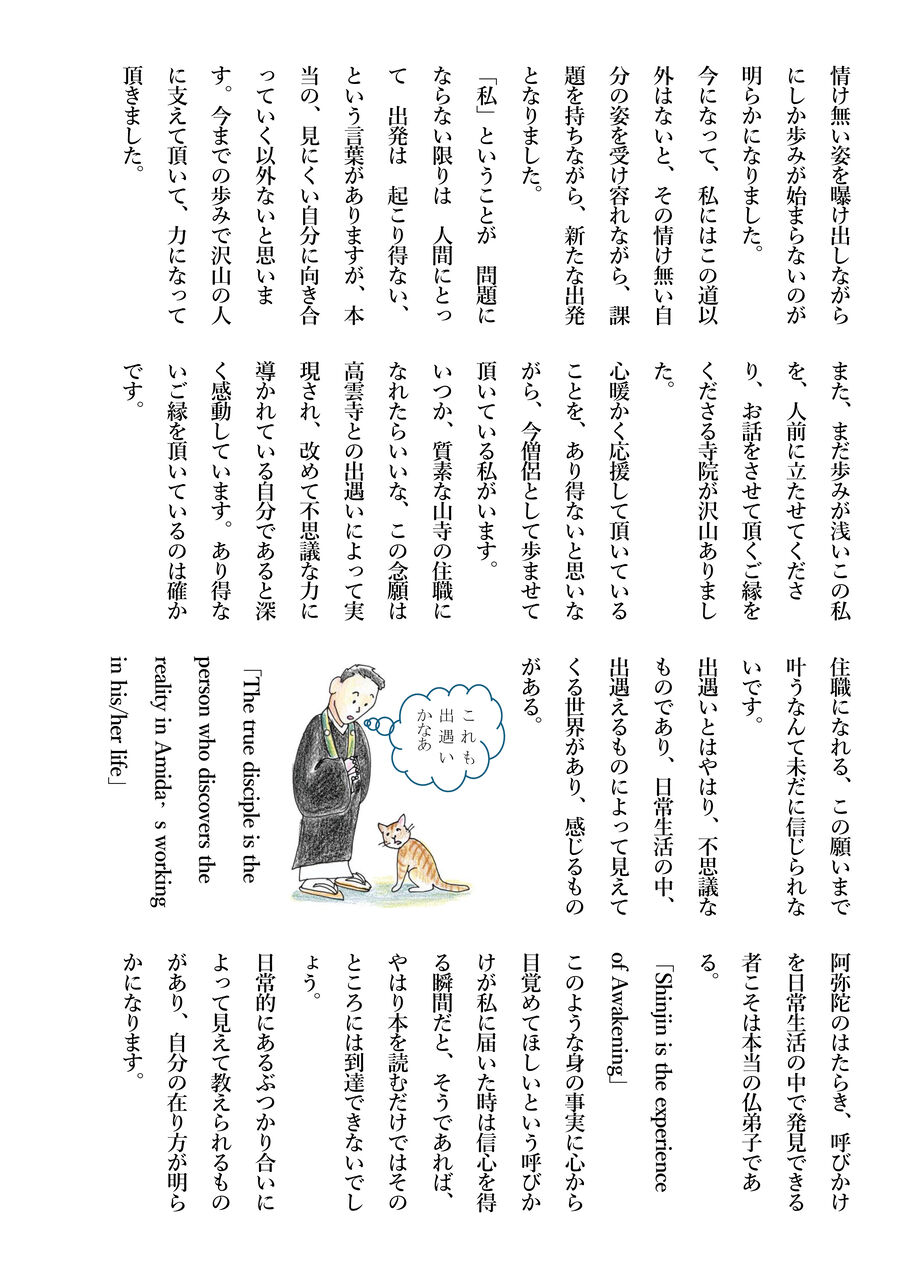 情け無い姿を曝け出しながら
にしか歩みが始まらないのが
明らかになりました。
今になって、私にはこの道以
外はないと、その情け無い自
分の姿を受け容れながら、課
題を持ちながら、新たな出発
となりました。
「私」ということが　問題に
ならない限りは　人間にとっ
て　出発は　起こり得ない、
という言葉がありますが、本
当の、見にくい自分に向き合
っていく以外ないと思いま
す。今までの歩みで沢山の人
に支えて頂いて、力になって
頂きました。
また、まだ歩みが浅いこの私
を、人前に立たせてくださ
り、お話をさせて頂くご縁を
くださる寺院が沢山ありまし
た。
心暖かく応援して頂いている
ことを、あり得ないと思いな
がら、今僧侶として歩ませて
頂いている私がいます。
いつか、質素な山寺の住職に
なれたらいいな、この念願は
高雲寺との出遇いによって実
現され、改めて不思議な力に
導かれている自分であると深
く感動しています。あり得な
いご縁を頂いているのは確か
です。
住職になれる、この願いまで
叶うなんて未だに信じられな
いです。
出遇いとはやはり、不思議な
ものであり、日常生活の中、
出遇えるものによって見えて
くる世界があり、感じるもの
がある。
これも
出遇い
かなあ
「The true disciple is the
person who discovers the
reality in Amida’s working
in his/her life」
阿弥陀のはたらき、呼びかけ
を日常生活の中で発見できる
者こそは本当の仏弟子であ
る。
「Shinjin is the experience
of Awakening」
このような身の事実に心から
目覚めてほしいという呼びか
けが私に届いた時は信心を得
る瞬間だと、そうであれば、
やはり本を読むだけではその
ところには到達できないでし
ょう。
日常的にあるぶつかり合いに
よって見えて教えられるもの
があり、自分の在り方が明ら
かになります。